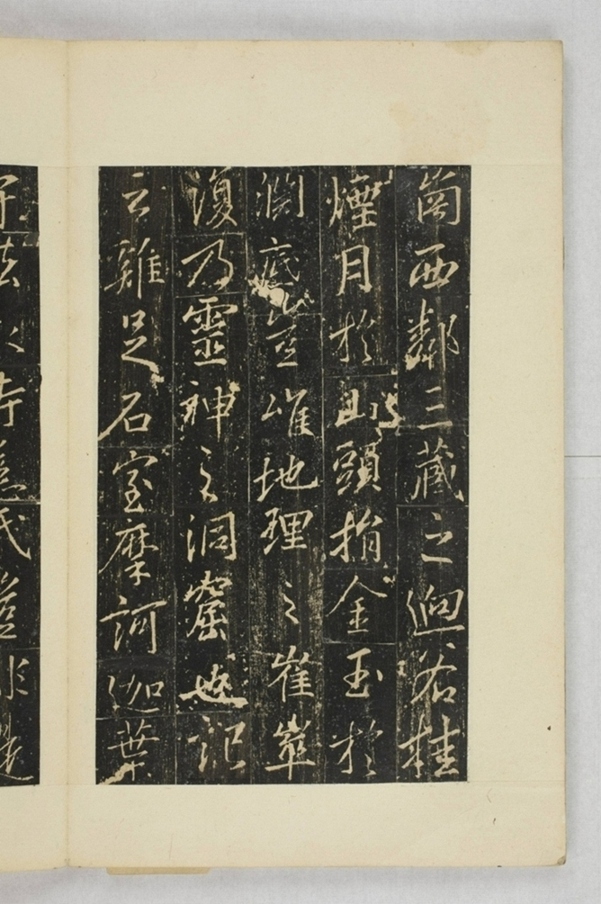 崗西鄰三藏之迴谷挂
煙月於山頭捐金玉於
澗底豈唯地理之崔崒
復乃靈神之洞窟也記
云雞足石室摩訶迦葉